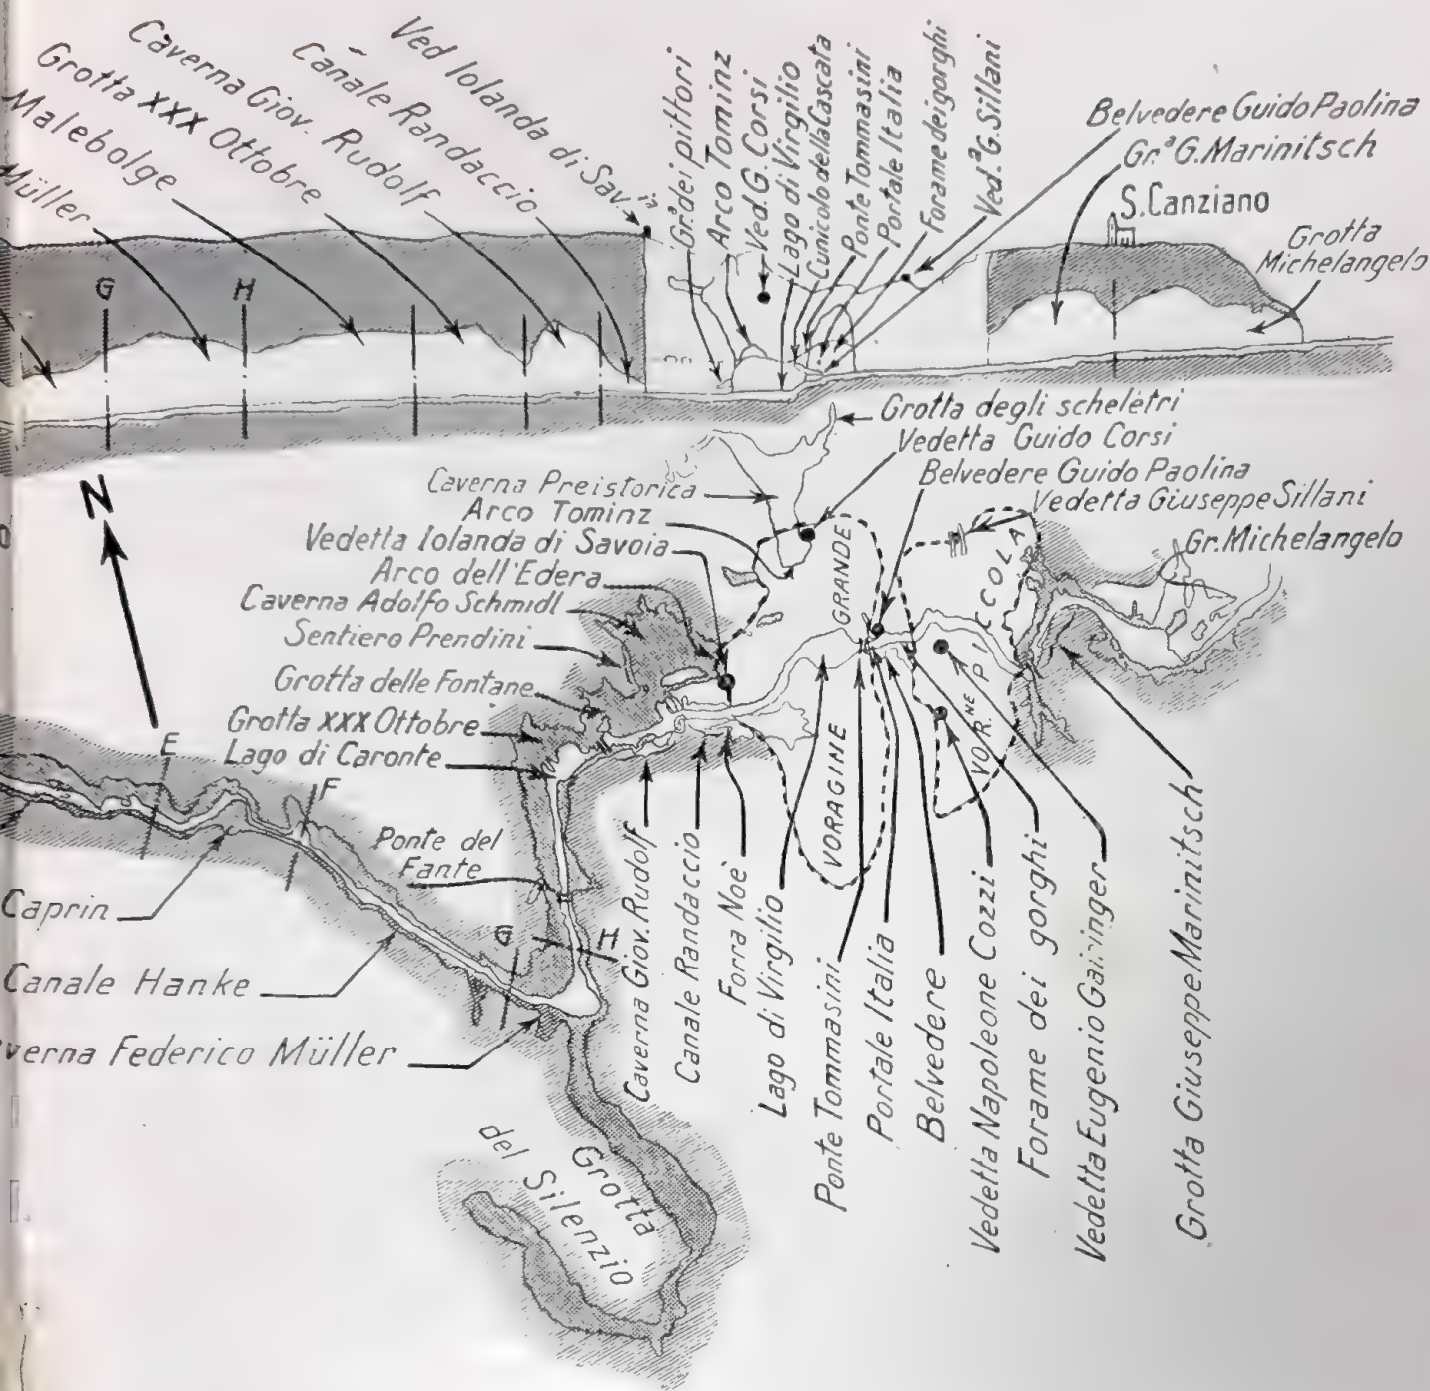 Müller
Malebolge
Grotta XXX Ottobre
Caverna Giov. Rudolf
Canale Randaccio
Ved Iolanda di Sav.ia
Gr.a dei pittori
Arco Tominz
Ved. G. Corsi
Lago di Virgilio
Cunicolo della Cascata
Ponte Tommasini
Portale Italia
Forame dei gorghi
Ved.a G. Sillani
Belvedere Guido Paolina
Gr.a G. Marinitsch
S. Canziano
Grotta
Michelangelo
G
H
Grotta degli scheletri
Vedetta Guido Corsi
Belvedere Guido Paolina
Vedetta Giuseppe Sillani
Gr. Michelangelo
Caverna Preistorica
Arco Tominz
Vedetta Iolanda di Savoia
Arco dell'Edera
Caverna Adolfo Schmidl
Sentiero Prendini
Grotta delle Fontane
Grotta XXX Ottobre
Lago di Caronte
N
E
F
Ponte del
Fante
G
H
Caprin
Canale Hanke
verna Federico Müller
VORAGINE GRANDE
VOR.NE PICCOLA
Caverna Giov. Rudolf
Canale Randaccio
Forra Noè
Lago di Virgilio
Ponte Tommasini
Portale Italia
Belvedere
Vedetta Napoleone Cozzi
Forame dei gorghi
Vedetta Eugenio Gairinger
Grotta Giuseppe Marinitsch
Grotta
del Silenzio